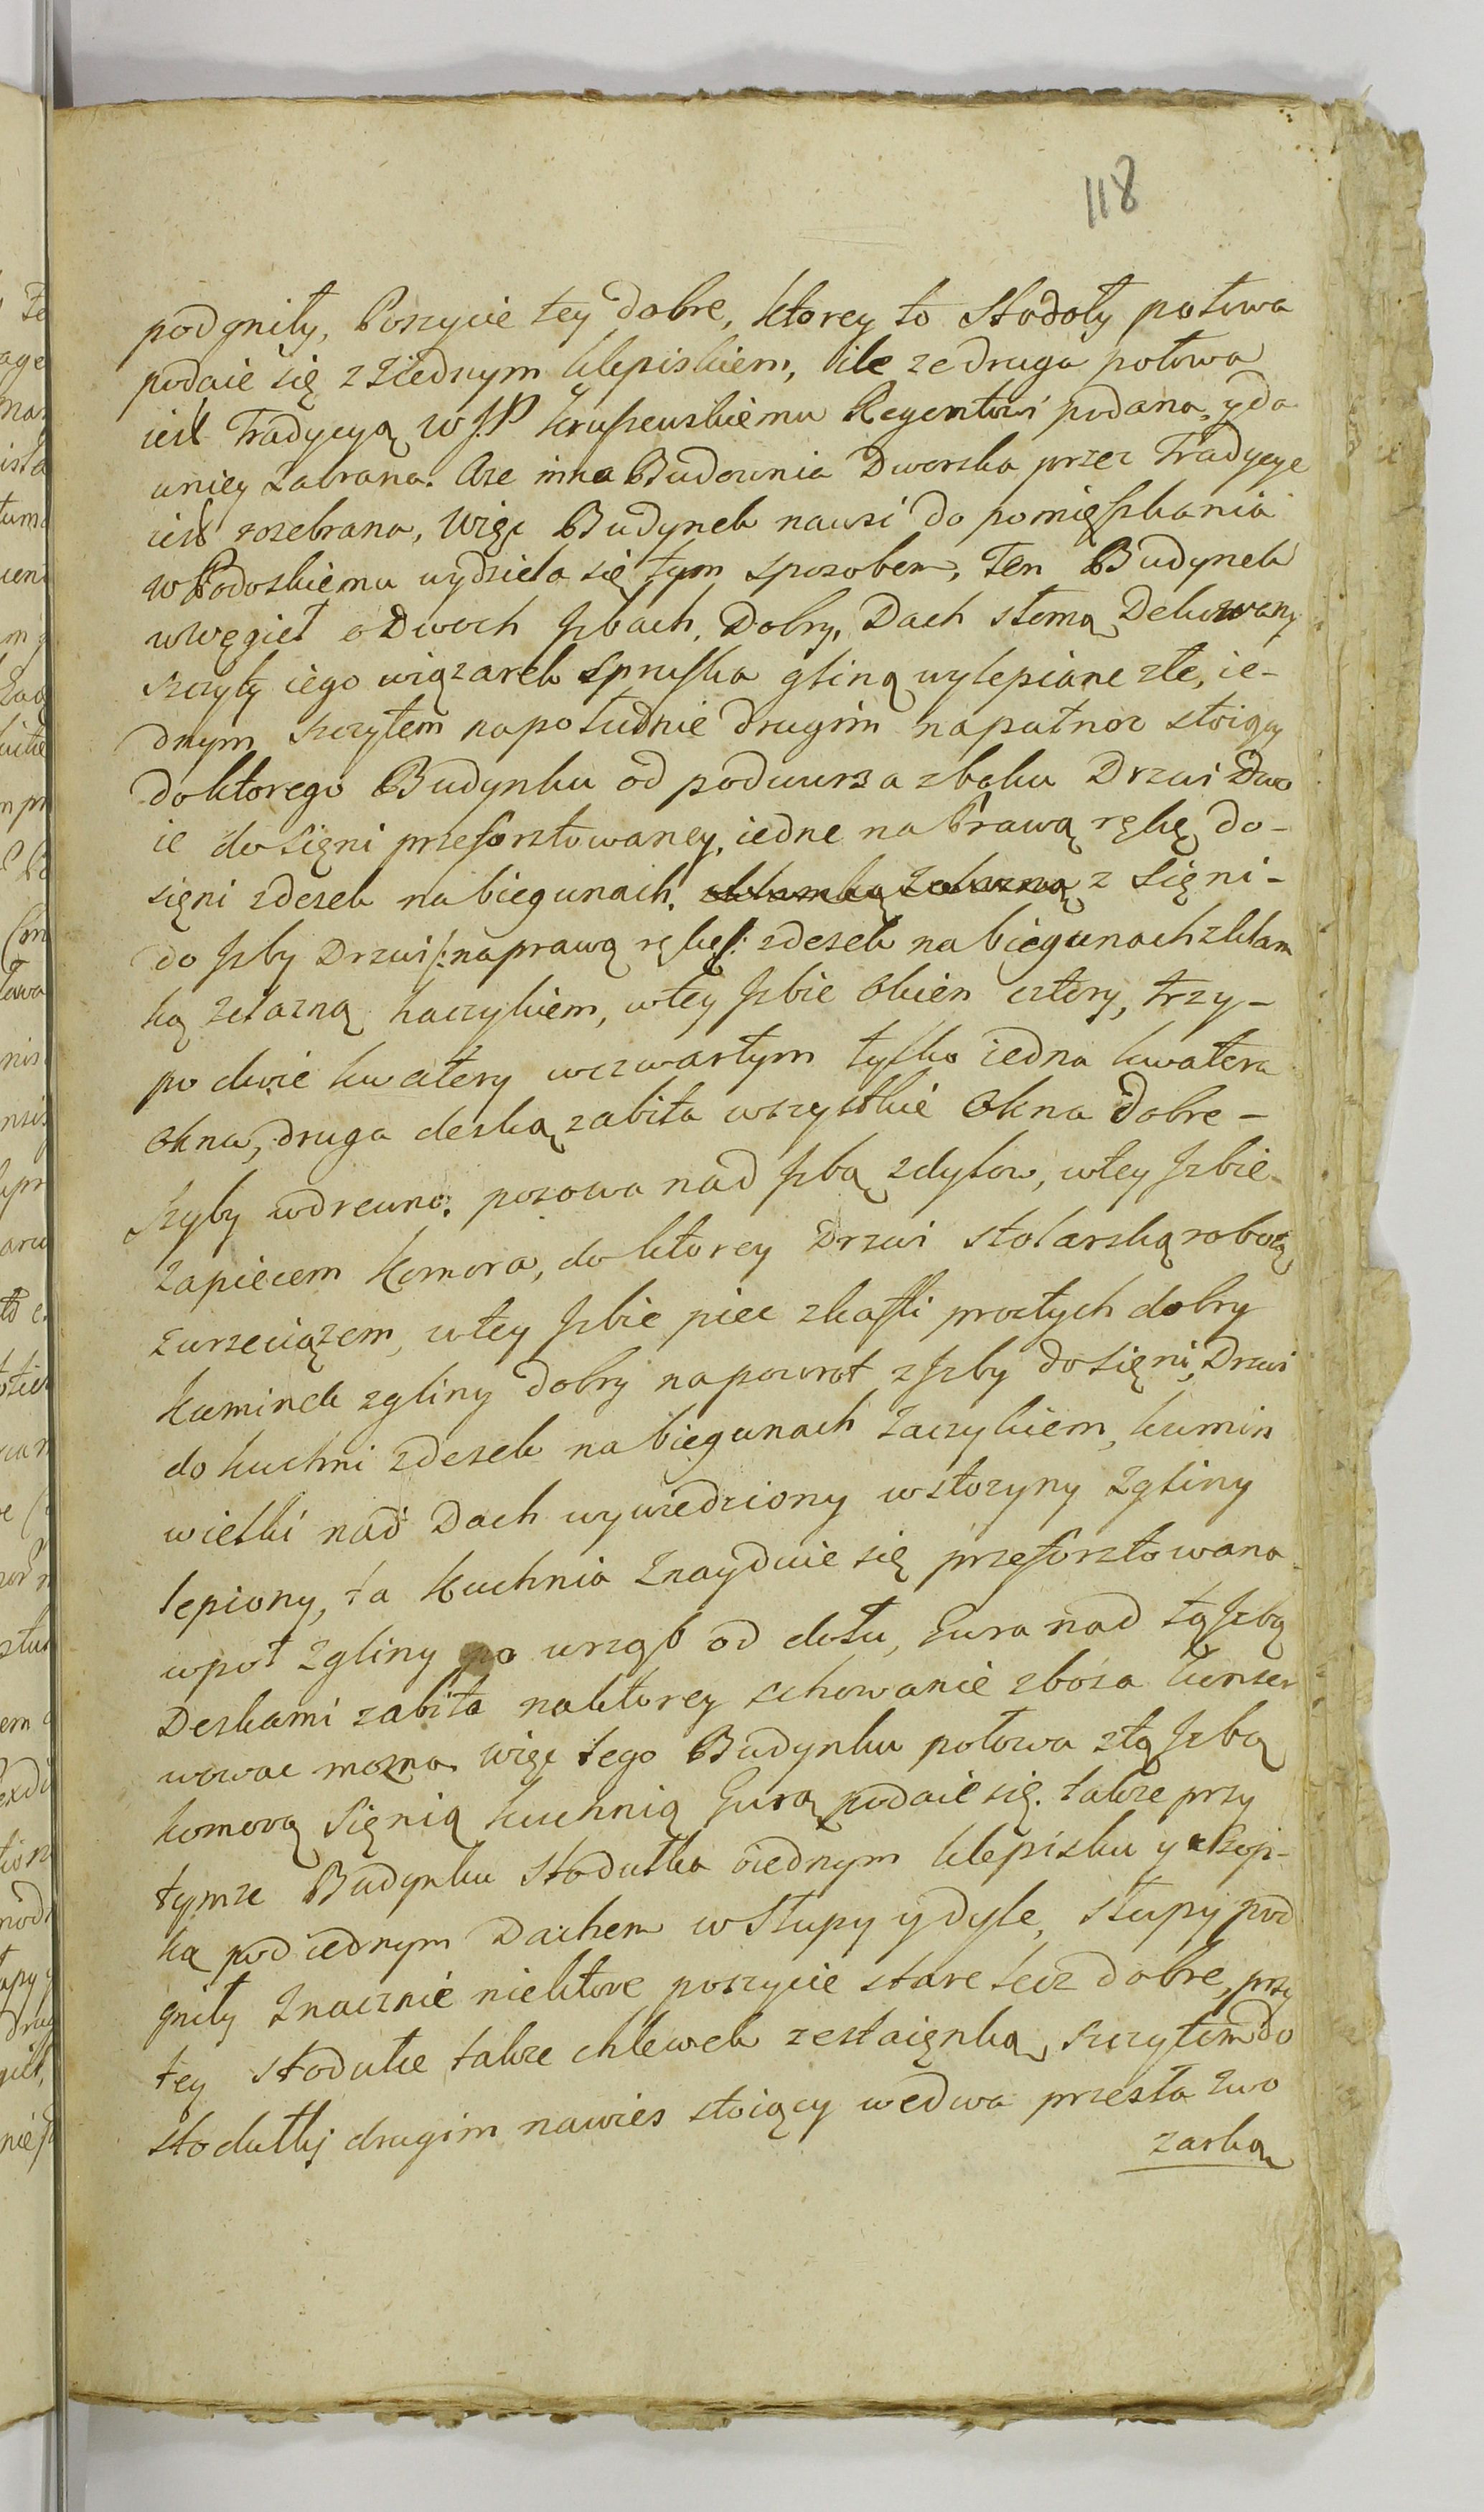 118
podgniły, Poszycie tey dobre, ktorey to Stodoły połowa
podaie się z iednym klepiskiem, ile ze druga połowa
iest Tradycyą W J.P Kruszewskiemu Regentowi podana, y da
wniey zabrana. Aze inna Budownia Dworska przez Tradycye
iest rozebrana, więc Budynek nawsi do pomięszkania
W Podoskiemu wydziela się tym sposobem, Ten Budynek
wwęgieł o dwoch Jzbach, Dobry, Dach słomą Dekowany
szczyty iego wiązarek spruska gliną wylepiane złe, ie-
dnym szczytem napołudnie drugim napułnoc stoiący
doktorego Budynku od podwurza zboku Drzwi Dwo
ie dosięni przeforsztowaney, iedne na Prawą rękę do-
sięni zdesek nabiegunach. z Sięni-
do Jzby Drzwi /: naprawą rękę /: zdesek nabiegunach zklam
ką zelazną haczykiem, wtey Jzbie Okien cztery, trzy-
po dwie kwatery wczwartym tylko iedna kwatera
okna, druga deską zabita wszystkie Okna Dobre-
szyby wdrewno. pozowa nad Jzbą zdylow, wtey Jzbie
Zapiecem Komora, do ktorey Drzwi stolarską robotą
zwrzeciązem, wtey Jzbie piec zkafli prostych dobry
Kuminek zgliny dobry napowrot z Jzby dosięni, Drzwi
do kuchni zdesek nabiegunach zaczykiem, kumin
wielki nad Dach wywiedziony wsłozyny zgliny
lepiony, ta Kuchnia znayduie się przeforsztowana
wpoł zgliny po wrząb od dołu, Gura nad tą Jzbą
Deskami zabita naktorey schowanie zboza konser
wowac mozna. więc tego Budynku połowa ztą Jzbą
komorą Sięnią kuchnią Gurą podaie się. takze przy
tymze Budynku Stodułka oiednym klepisku y
ką pod iednym Dachem wSłupy y dyle, słupy pod
gniły znacznie niektore poszycie stare lecz dobre, przy
tey stodulce takze chlewek zestaięnką szczytem do
stodułky drugim nawies stoiący wedwa przesła zwo
zarką